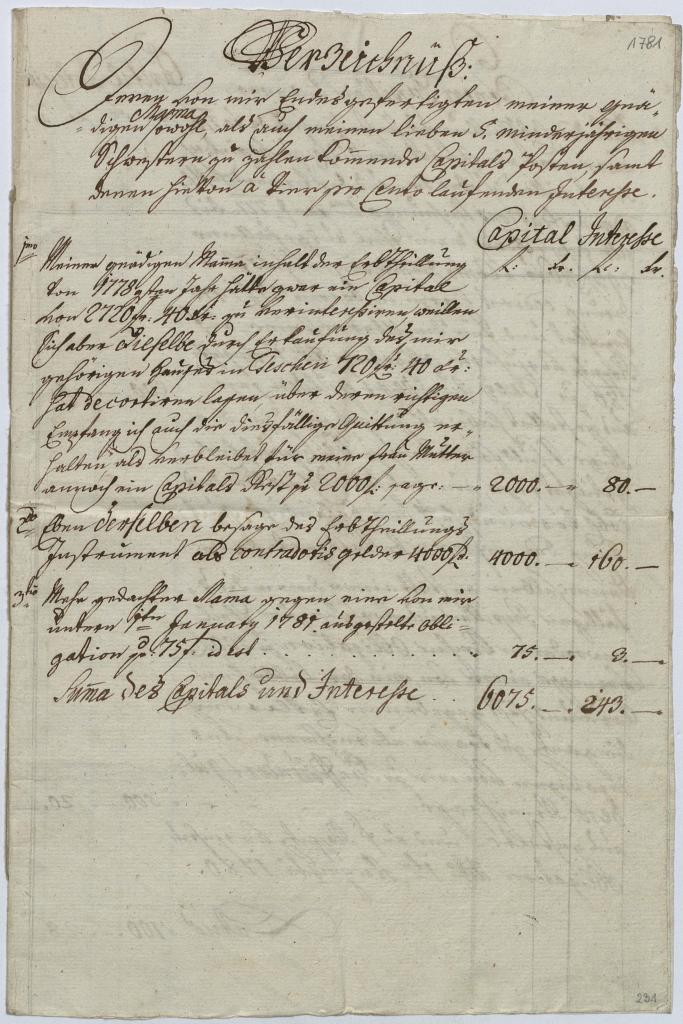 1781
Verzeichnüß:
Jenen von mir Endesgefertigten meiner gnä-
digen Mama sowohl, als auch meinen lieben 5. minderjährigen
Schwestern zu zahlen kommende Capitals Posten, samt
denen hievon à vier pro Cento laufenden Interesse.
Capital Interesse
f: kr. f: kr.
1mo Meiner gnädigen Mama inhalt der Erbtheillung
von 1778sten Jahr hätte zwar ein Capital
von 2720 f: 40 kr: zu verinteressiren weillen
sich aber Dieselbe durch Erkaufung des mir
gehörigen Hauses in Teschen 720 f: 40 kr:
hat decortiren lassen, über deren richtigen
Empfang ich auch die diesfällige Quittung er-
halten, als verbleibet für meine Frau Mutter
annoch ein Capitals Rest zu 2000 f: sage: — 2000. — 80. —
2do Eben derselben besage des Erbtheillungs
Instrument als contradotis gelder 4000 f. 4000. — 160. —
3tio Mehr gedachter Mama gegen eine von mir
untern 1ten January 1781. ausgestelte Obli-
gation pr: 75 f. idest . . . . . . . . . 75. — 3. —
Suma des Capitals und Interesse . . 6075. — 243. —
231